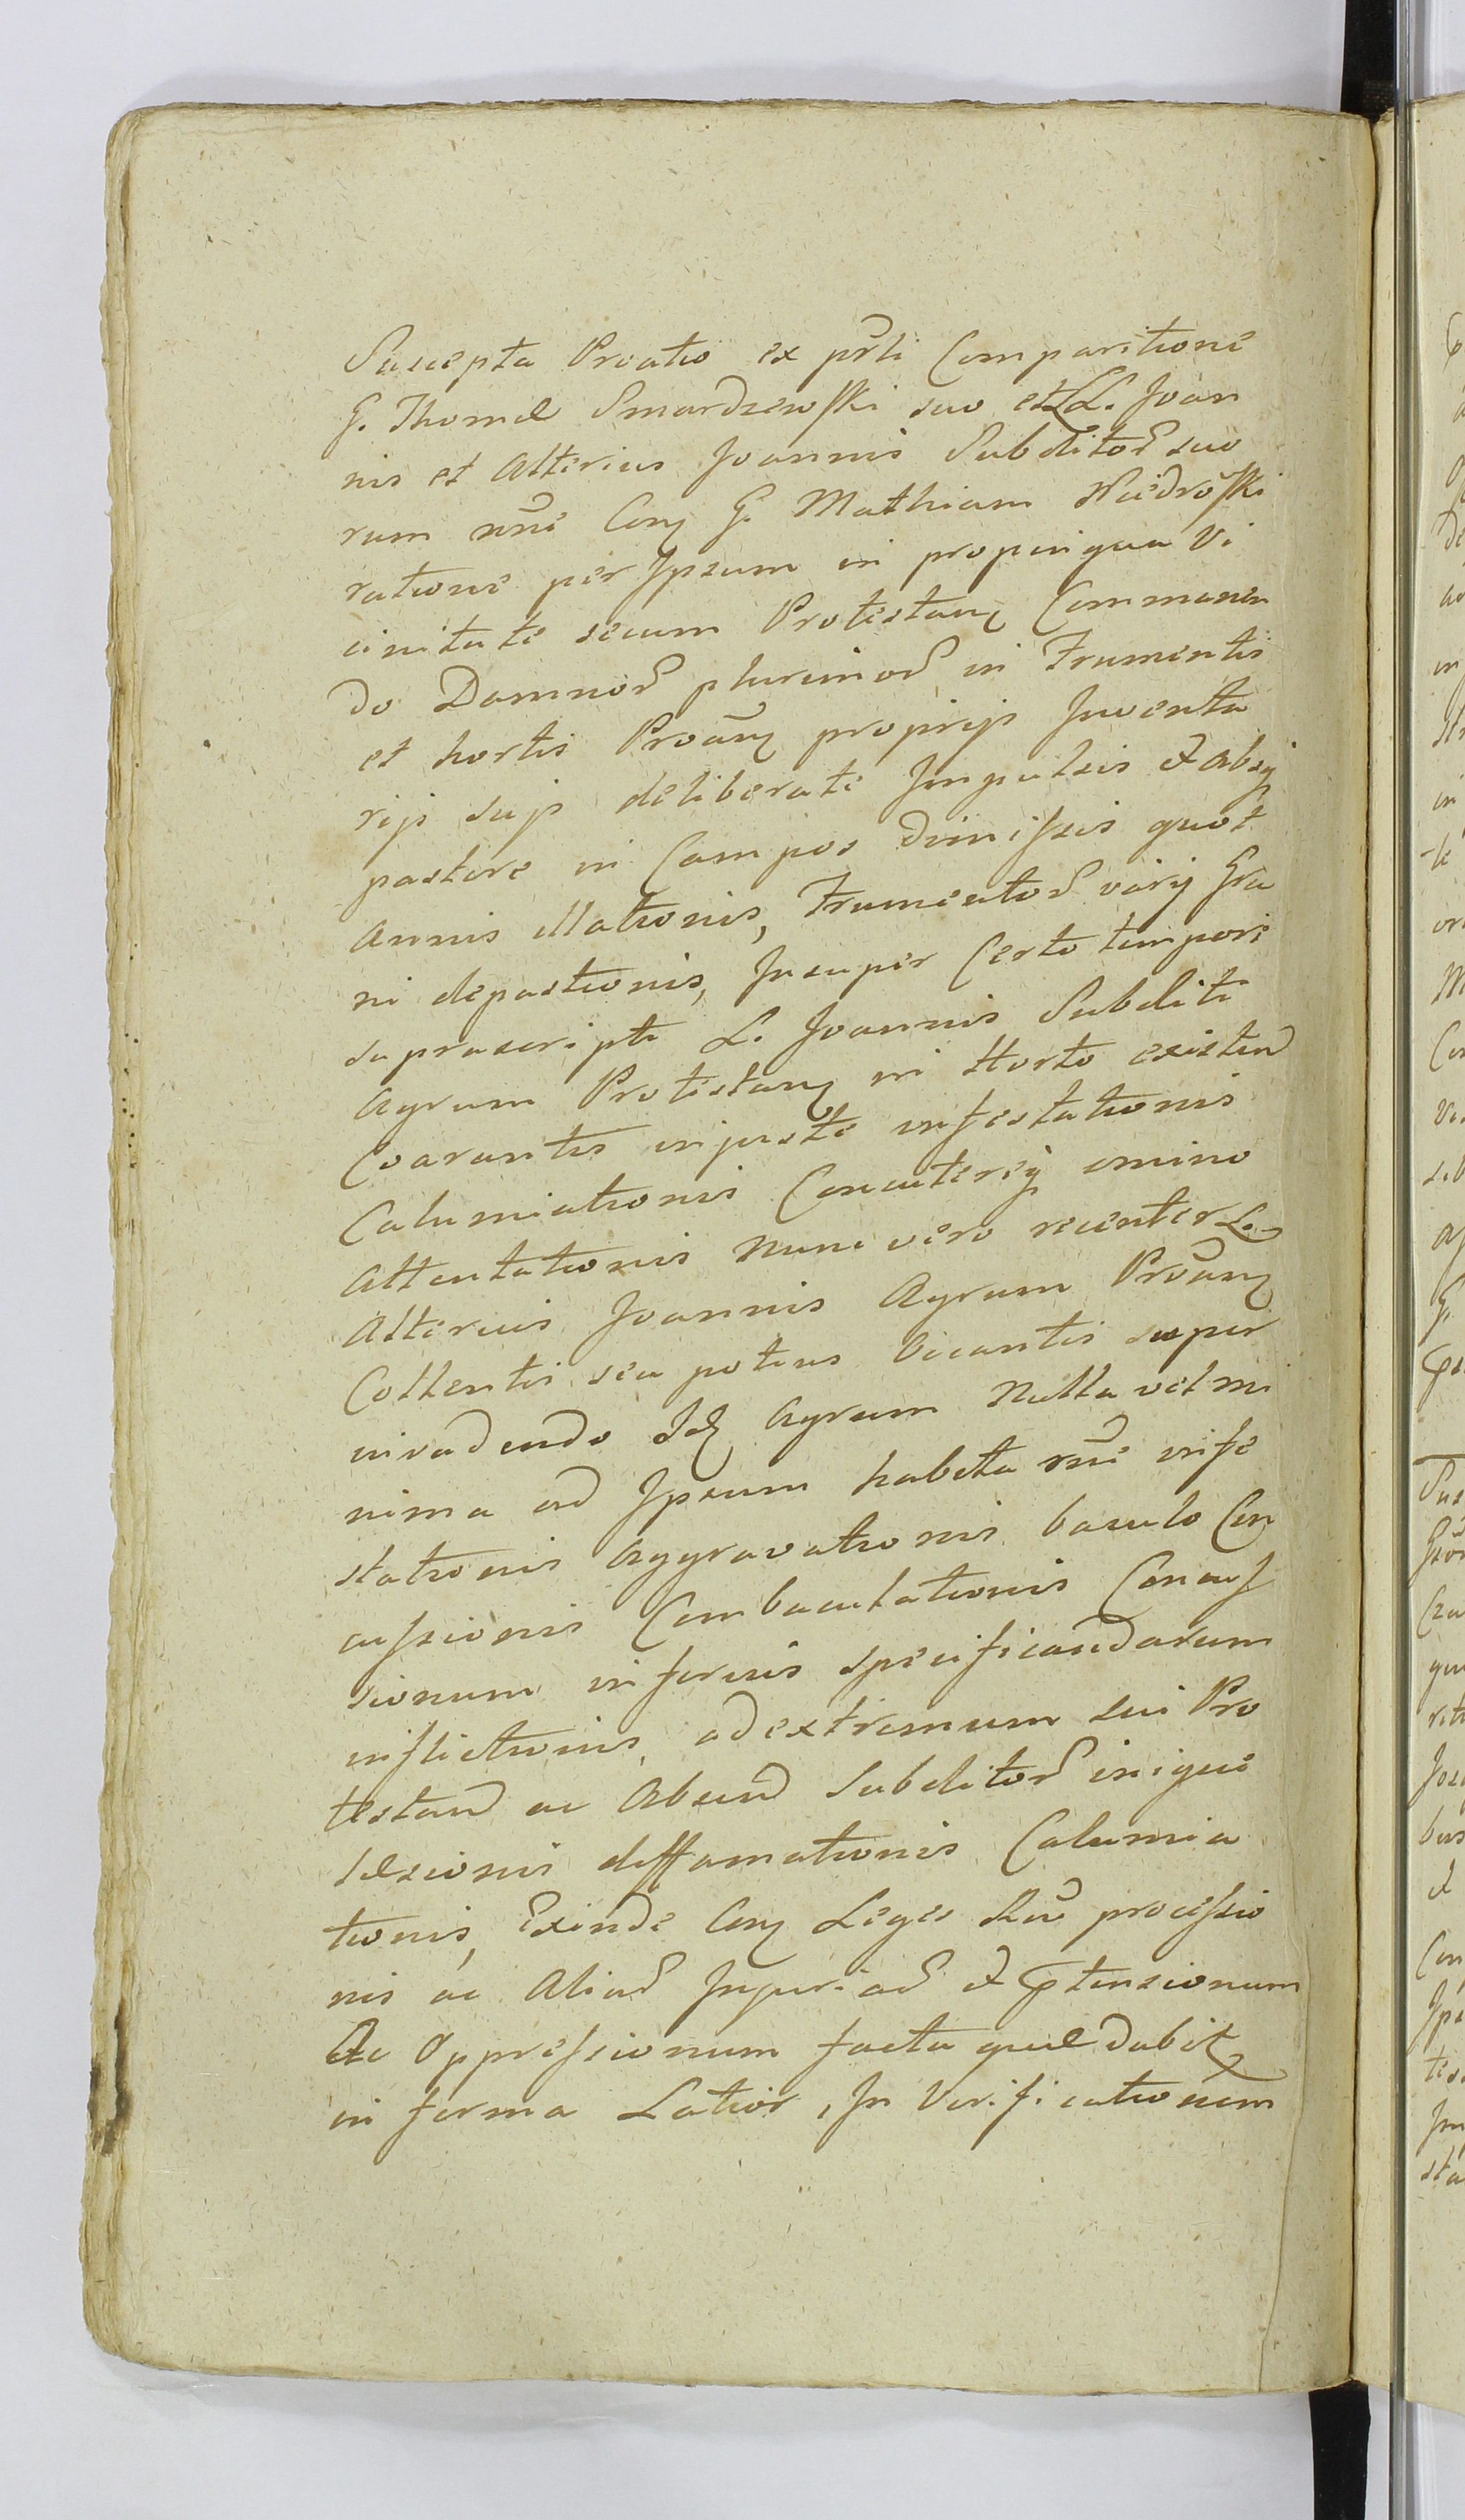 Suscepta Proatio ex prsti Comparitione
G. Thomæ Smardzewski suo et LL. Joan
nis et Alterius Joannis Subditor suo
rum nne Con G. Mathiam
ratione per Ipsum in propinqua Vi
cinitate secum Protestan Commanen
do Damnor plurimor in Frumentis
et hortis Proan proprijs Inventa
rijs sujs deliberate Impulsis et absq
pastore in Campos dimissis quot
annis illationis, Frumentor varij Gra
ni depastionis, Insuper Certo tempore
suprascripti L. Joannis Subditi
Agrum Protestan in Horto existen
Coarantis injuste infestationis
Calumiationis Concuterej omino
Attentationis Nunc vero recenter L.
Alterius Joannis Agrum Proan
Collentis seu potius Occantis super
invadendo Agrum Nulla vel mi
nima ad Ipsum habita rne infe
stationis Aggravationis baculo Con
cussionis Combaculationis Concus
sionum inferius specificandarum
inflictionis, ad extremum sui Pro
testand ac Absend Subditor inique
læsionis diffamationis Calumia
tionis, Exinde Con Leges processio
nis ac Aliar Injuriar et Ptensionum
Ac Oppressionum facta quæ dabit
in forma Latior, In Verificationem